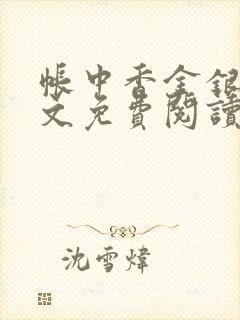 帳中香金銀
文免費閱讀
沈雪煒